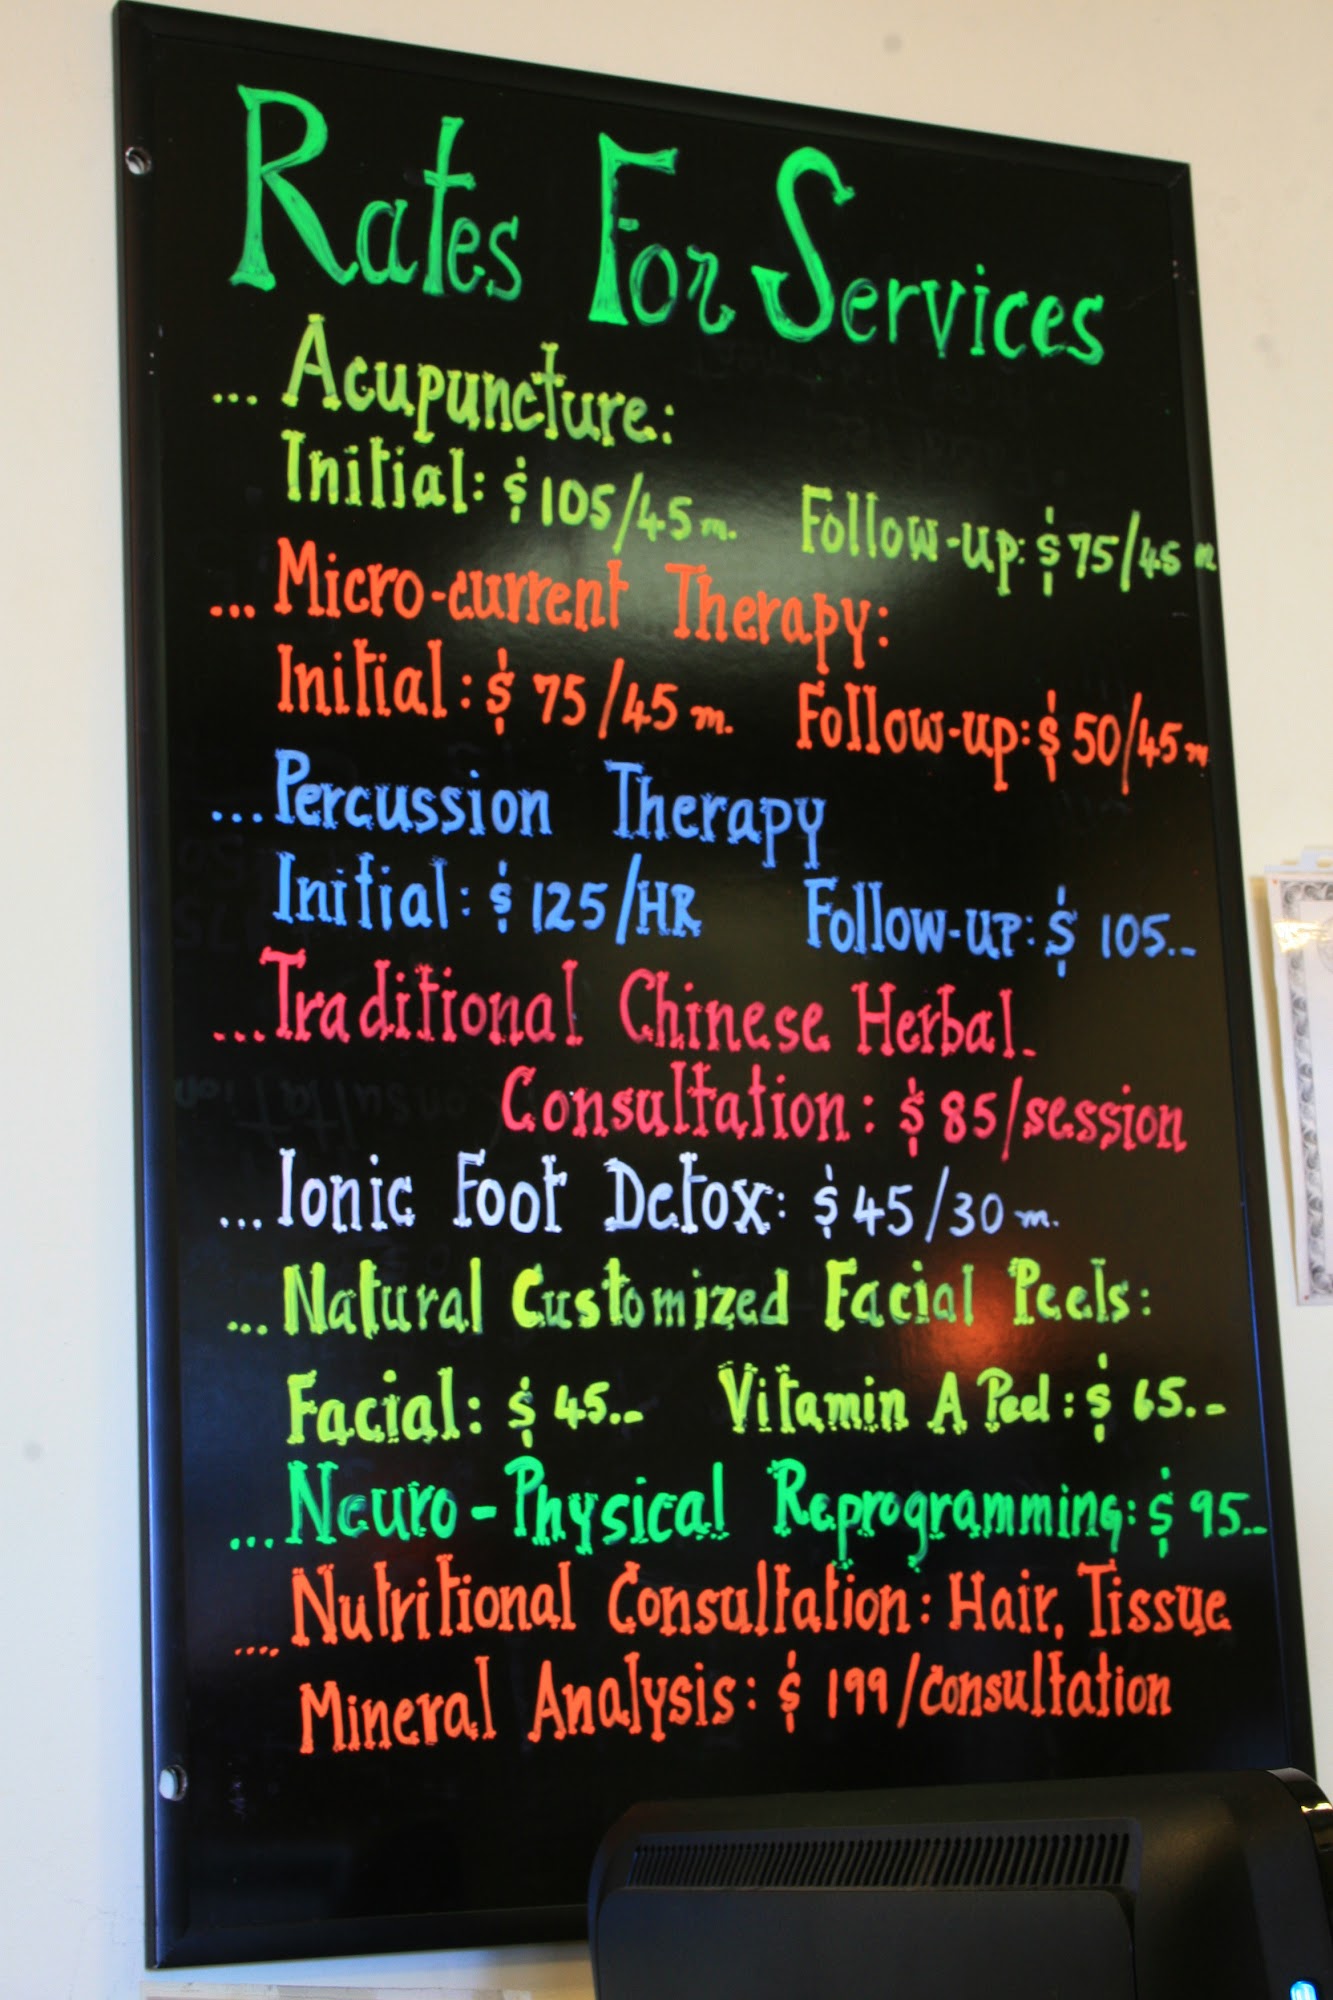 Rates For Services
... Acupuncture:
Initial: $105/45 m. Follow-up: $75/45 m
... Micro-current Therapy:
Initial: $75/45 m. Follow-up: $50/45 m
... Percussion Therapy
Initial: $125/HR Follow-up: $105.--
... Traditional Chinese Herbal
Consultation: $85/session
... Ionic Foot Detox: $45/30 m.
... Natural Customized Facial Peels:
Facial: $45.-- Vitamin A Peel: $65.--
... Neuro-Physical Reprogramming: $95.--
.... Nutritional Consultation: Hair, Tissue
Mineral Analysis: $199/consultation